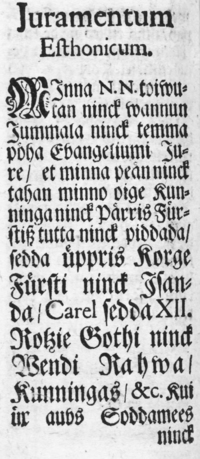 Juramentum
Esthonicum.
MInna N.N. toiwu-
tan ninck wannun
Jummala ninck temma
pöha Evangeliumi Ju-
re/ et minna peän ninck
tahan minno oige Kun-
ninga ninck Pärris Für-
stiß tutta ninck piddada/
sedda üppris Korge
Fürsti ninck Isan-
da/ Carel sedda XII.
Rotzie Gothi ninck
Wendi Rahwa/
Kunningas/ &c. Kui
üx aubs Soddamees
ninck